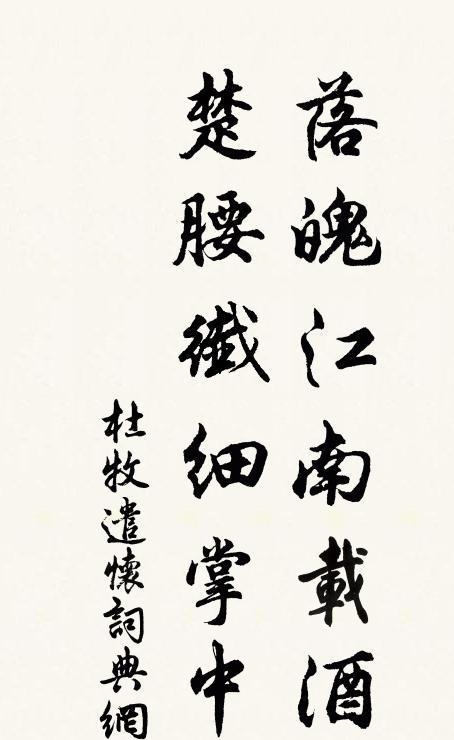 落魄江南載酒
楚腰纖細掌中
杜牧遣懷詞典網